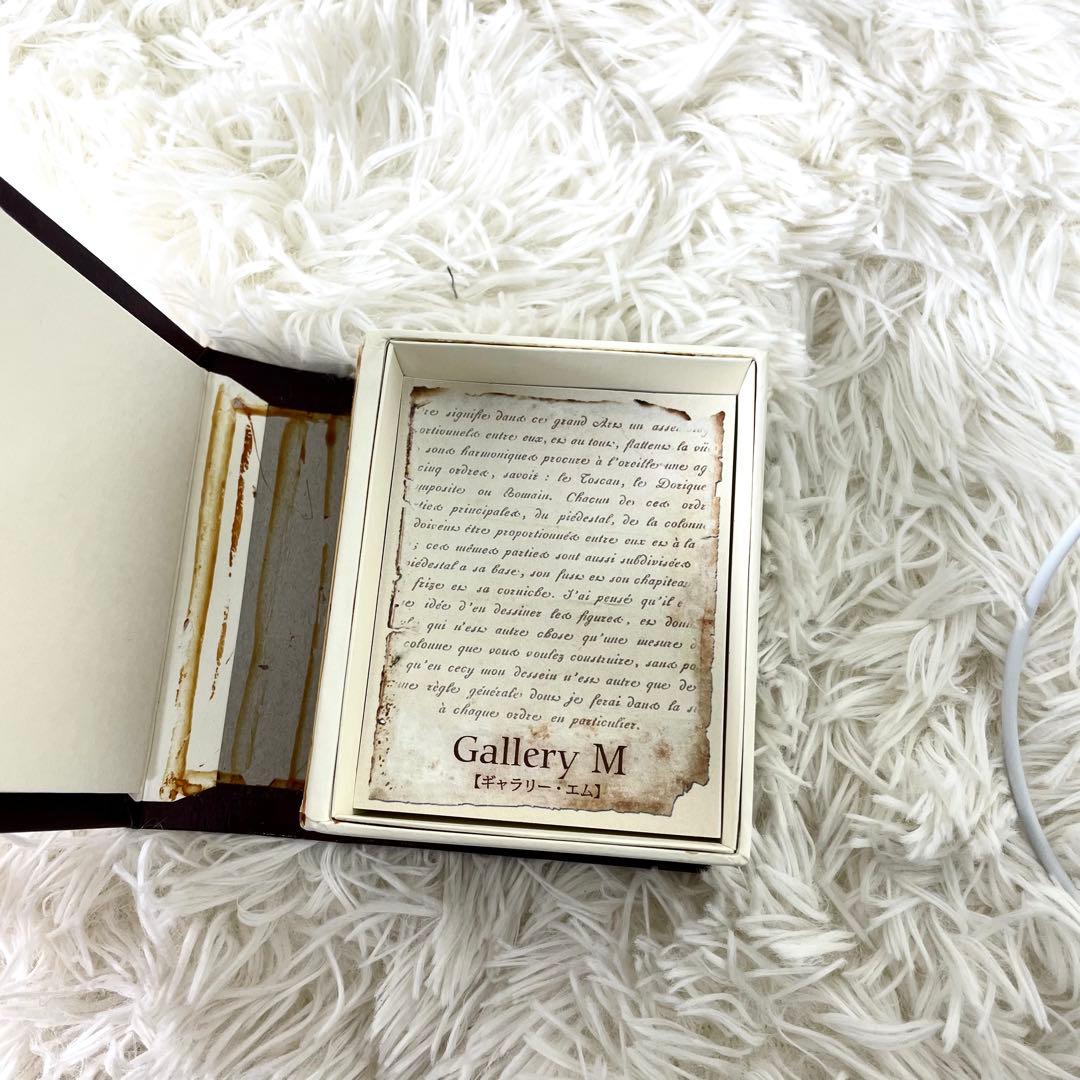 re signifie dans ce grand Art un assem
ortionnels entre eux, et au tour, flattent la vüe
sons harmoniques procure à l'oreille une ag
cinq ordres, savoir : le Toscan, le Dorique
mposite ou Romain. Chacun de ces ordr
ties principales, du piédestal, de la colonn
doivent être proportionnés entre eux et à la
; ces mêmes parties sont aussi subdivisées
iédestal a sa base, son fust et son chapiteau
frize et sa corniche. J'ai pensé qu'il
idée d'en dessiner les figures, et don
qui n'est autre chose qu'une mesure d
colonne que vous voulez construire, sans po
qu'en cecy mon dessein n'est autre que de
ne règle générale dont je ferai dans la s
à chaque ordre en particulier.
Gallery M
【ギャラリー・エム】